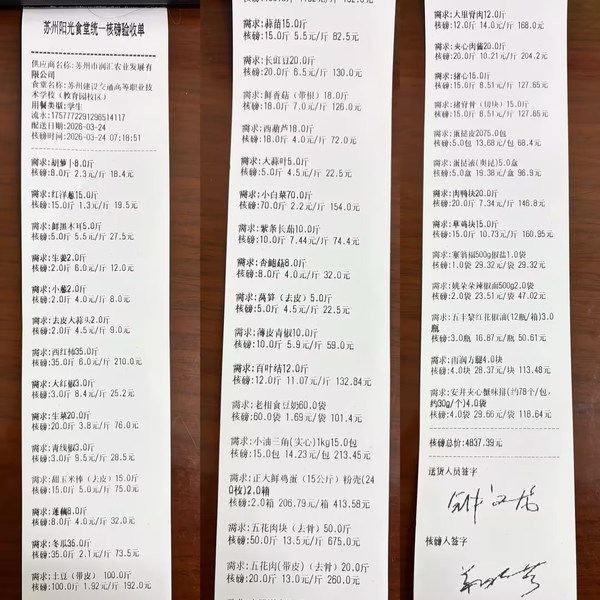 苏州阳光食堂统一核磅验收单
供应商名称:苏州市润汇农业发展有
限公司
食堂名称:苏州建设交通高等职业技
术学校(教育园校区)
用餐类型:学生
流水:1757772291296514117
配送日期:2026-03-24
核磅时间:2026-03-24 07:18:51
需求:胡萝卜8.0斤
核磅:8.0斤 2.3元/斤 18.4元
需求:红洋葱15.0斤
核磅:15.0斤 1.3元/斤 19.5元
需求:鲜黑木耳5.0斤
核磅:5.0斤 5.5元/斤 27.5元
需求:生姜2.0斤
核磅:2.0斤 6.0元/斤 12.0元
需求:小葱2.0斤
核磅:2.0斤 4.0元/斤 8.0元
需求:去皮大蒜头2.0斤
核磅:2.0斤 4.5元/斤 9.0元
需求:西红柿35.0斤
核磅:35.0斤 6.0元/斤 210.0元
需求:大红椒3.0斤
核磅:3.0斤 8.4元/斤 25.2元
需求:生菜20.0斤
核磅:20.0斤 3.8元/斤 76.0元
需求:青线椒3.0斤
核磅:3.0斤 9.5元/斤 28.5元
需求:甜玉米棒(去皮)15.0斤
核磅:15.0斤 5.0元/斤 75.0元
需求:莲藕8.0斤
核磅:8.0斤 4.0元/斤 32.0元
需求:冬瓜35.0斤
核磅:35.0斤 2.1元/斤 73.5元
需求:土豆(带皮) 100.0斤
核磅:100.0斤 1.92元/斤 192.0元
需求:蒜苗15.0斤
核磅:15.0斤 5.5元/斤 82.5元
需求:长豇豆20.0斤
核磅:20.0斤 6.5元/斤 130.0元
需求:鲜香菇(带根)18.0斤
核磅:18.0斤 7.0元/斤 126.0元
需求:西葫芦18.0斤
核磅:18.0斤 4.0元/斤 72.0元
需求:大蒜叶5.0斤
核磅:5.0斤 4.5元/斤 22.5元
需求:小白菜70.0斤
核磅:70.0斤 2.2元/斤 154.0元
需求:紫条长茄10.0斤
核磅:10.0斤 7.44元/斤 74.4元
需求:杏鲍菇8.0斤
核磅:8.0斤 4.0元/斤 32.0元
需求:莴笋(去皮)5.0斤
核磅:5.0斤 4.5元/斤 22.5元
需求:薄皮青椒10.0斤
核磅:10.0斤 5.9元/斤 59.0元
需求:百叶结12.0斤
核磅:12.0斤 11.07元/斤 132.84元
需求:老相食豆奶60.0袋
核磅:60.0袋 1.69元/袋 101.4元
需求:小油三角(实心)1kg15.0包
核磅:15.0包 14.23元/包 213.45元
需求:正大鲜鸡蛋(15公斤) 粉壳(24
0枚)2.0箱
核磅:2.0箱 206.79元/箱 413.58元
需求:五花肉块(去骨)50.0斤
核磅:50.0斤 13.5元/斤 675.0元
需求:五花肉(带皮)(去骨)20.0斤
核磅:20.0斤 13.0元/斤 260.0元
需求:大里脊肉12.0斤
核磅:12.0斤 14.0元/斤 168.0元
需求:夹心肉酱20.0斤
核磅:20.0斤 10.21元/斤 204.2元
需求:猪心15.0斤
核磅:15.0斤 8.51元/斤 127.65元
需求:猪脊骨(切块)15.0斤
核磅:15.0斤 8.51元/斤 127.65元
需求:蛋挞皮2075.0包
核磅:5.0包 13.68元/包 68.4元
需求:蛋挞液(奥昆)5.0盒
核磅:5.0盒 19.38元/盒 96.9元
需求:肉鸭块20.0斤
核磅:20.0斤 7.34元/斤 146.8元
需求:草鸡块15.0斤
核磅:15.0斤 10.73元/斤 160.95元
需求:塞翁福500g椒盐1.0袋
核磅:1.0袋 29.32元/袋 29.32元
需求:姚朵朵辣椒面500g2.0袋
核磅:2.0袋 23.51元/袋 47.02元
需求:五丰黎红花椒油(12瓶/箱)3.0
瓶
核磅:3.0瓶 16.87元/瓶 50.61元
需求:雨润方腿4.0块
核磅:4.0块 28.37元/块 113.48元
需求:安井夹心蟹味排(约78个/包,
约30g/个)4.0袋
核磅:4.0袋 29.66元/袋 118.64元
核磅总价:4837.39元
送货人员签字
核磅人签字